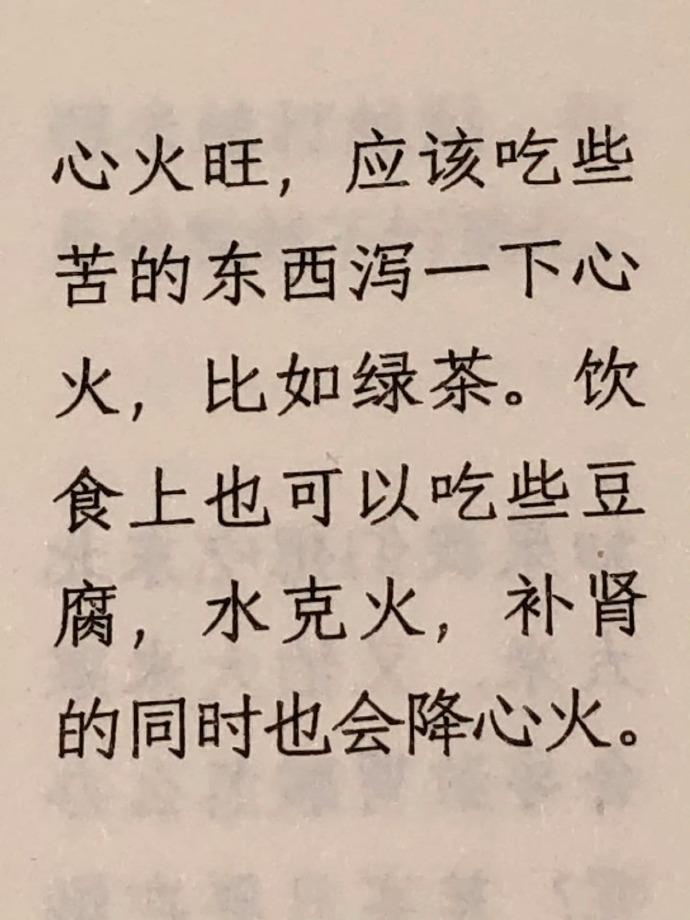 心火旺，应该吃些
苦的东西泻一下心
火，比如绿茶。饮
食上也可以吃些豆
腐，水克火，补肾
的同时也会降心火。